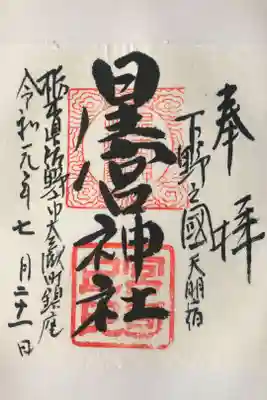 奉拝
下野之國天明宿
星宮神社
栃木県佐野市大蔵町鎮座
令和元年七月二十一日